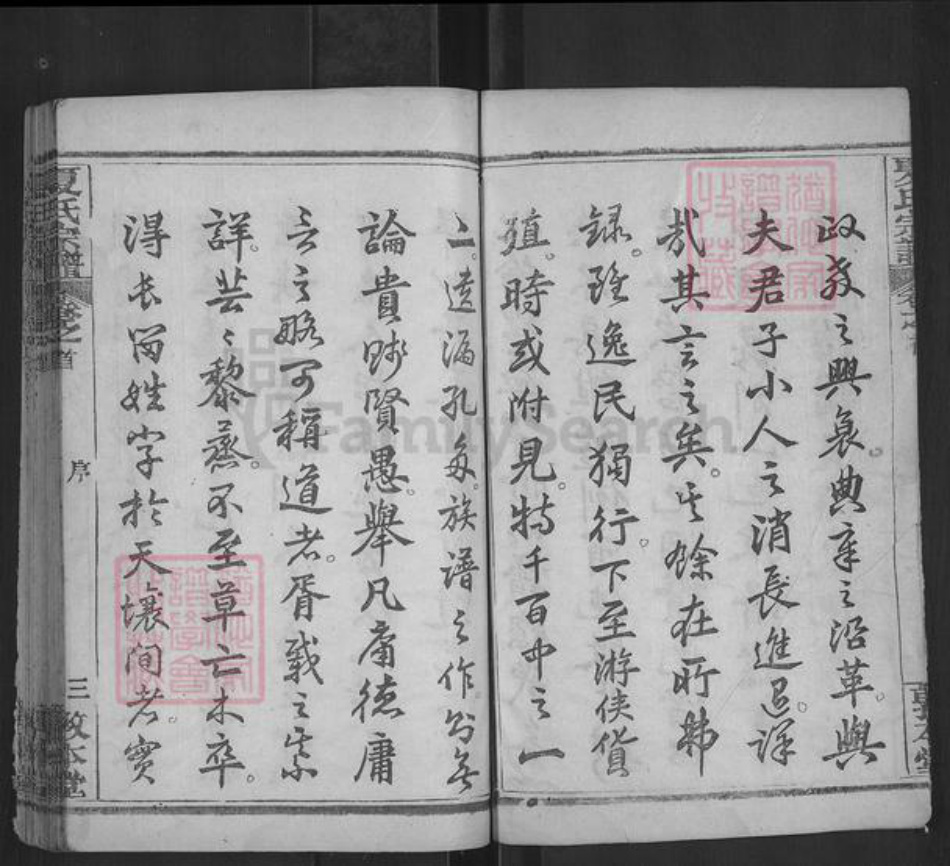 夏氏宗譜
政教之興衰典章之沿革與
夫君子小人之消長進退詳
哉其言之矣其餘在所弗
録雖逸民獨行下至游俠貨
殖時或附見特千百中之一
二遺漏孔多族譜之作則無
論貴賤賢愚舉凡庸德庸
言之略可稱道者胥載之綦
詳芸々黎蒸不至草亡木卒
得長留姓字於天壤間者實
夏氏宗譜
卷之首
序
三
敦本堂
FamilySearch